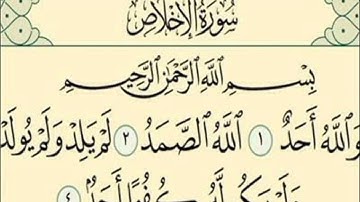 سُورَةُ الْإِخْلَاصِ
بِسْمِ اللَّهِ الرَّحْمَٰنِ الرَّحِيمِ
وَاللَّهُ أَحَدٌ ١ اللَّهُ الصَّمَدُ ٢ لَمْ يَلِدْ وَلَمْ يُولَدْ
وَلَمْ يَكُن لَّهُ كُفُوًا أَحَدٌ ٤